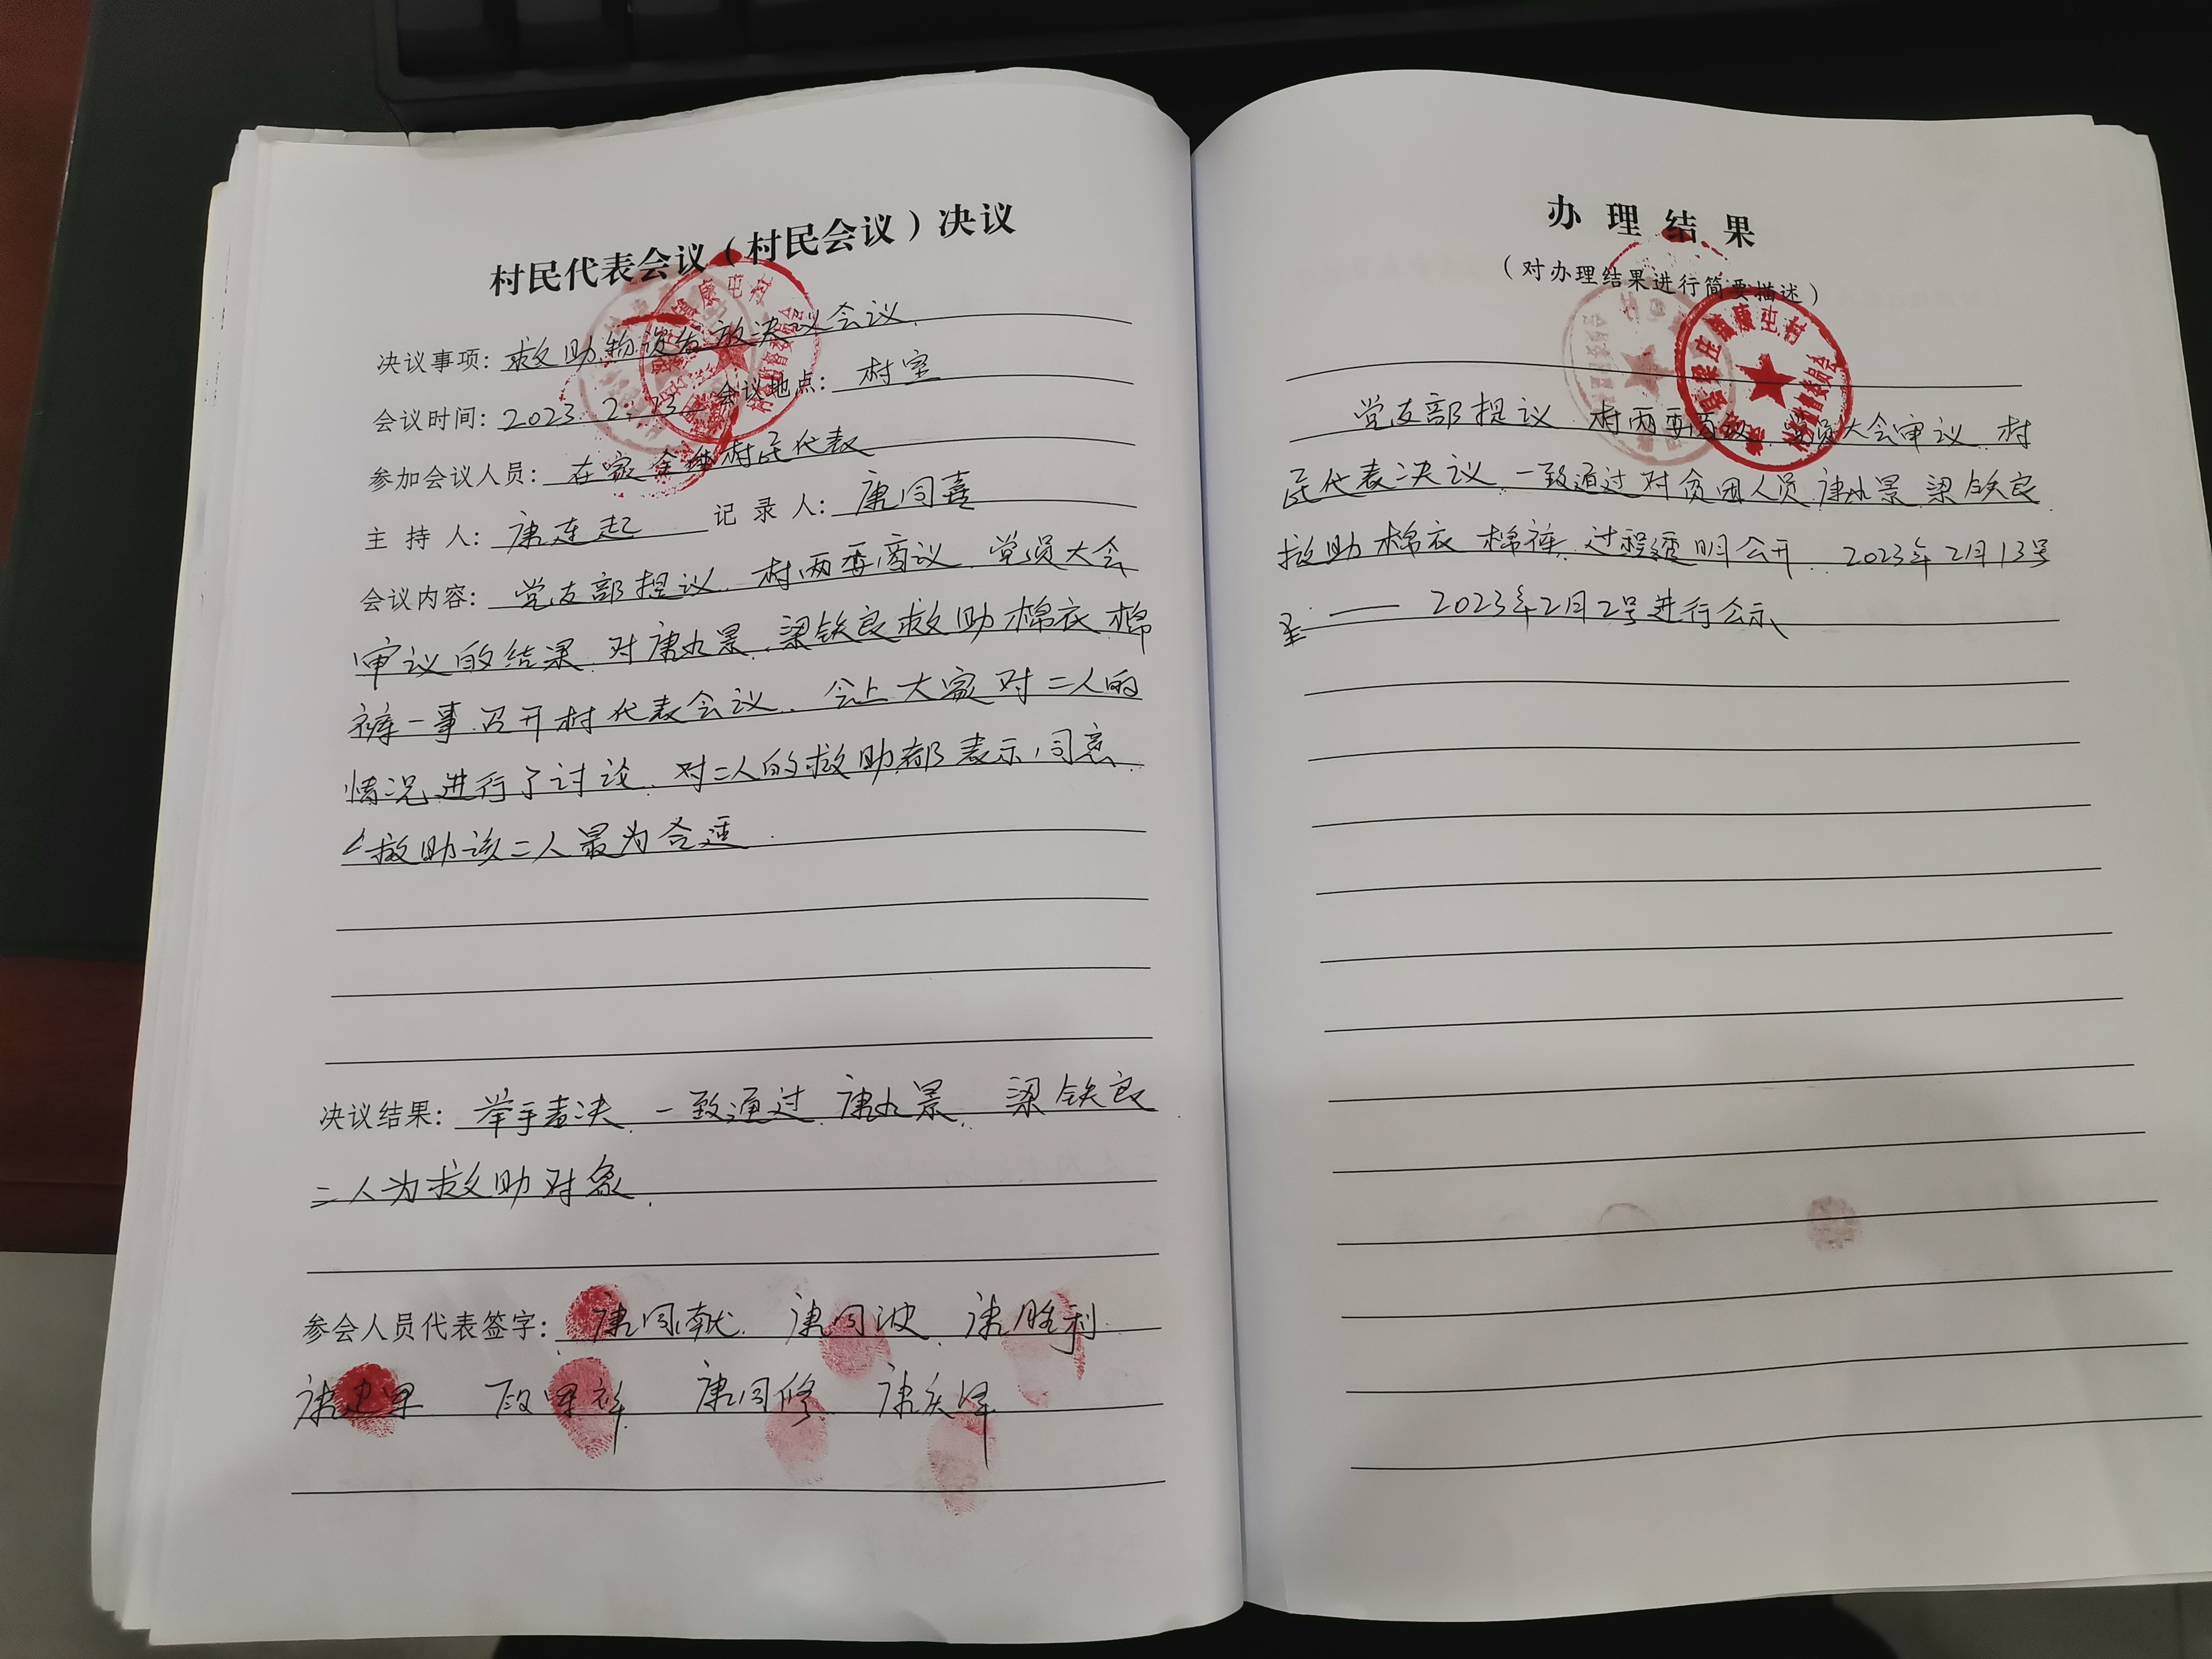 村民代表会议（村民会议）决议
决议事项：救助物资发放决议会议
会议时间：2023.2.13 会议地点：村室
参加会议人员：在家全体村民代表
主持人：康连起 记录人：康同喜
会议内容：党支部提议、村两委商议、党员大会
审议的结果、对康九景、梁铁良救助棉衣棉
裤一事召开村代表会议、会上大家对二人的
情况进行了讨论、对二人的救助都表示同意、
救助该二人最为合适.
决议结果：举手表决、一致通过康九景、梁铁良
二人为救助对象.
参会人员代表签字：康同献 康同波 康胜利
康 段 康同修 康庆
办理结果
（对办理结果进行简要描述）
梁庄镇康屯村 村务监督委员会
党支部提议、村两委商议、党员大会审议、村
民代表决议、一致通过对贫困人员康九景梁铁良
救助棉衣棉裤、过程透明公开、2023年2月13号
至——2023年2月2号进行公示